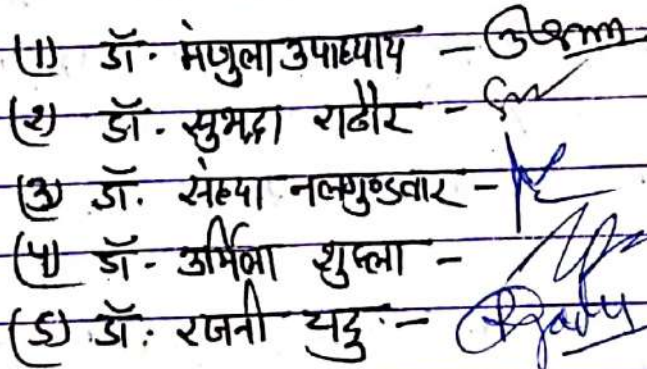 (१) डॉ. मंजुला उपाध्याय -
(२) डॉ. सुभद्रा राठौर -
(३) डॉ. संध्या नलगुण्डवार -
(४) डॉ. उर्मिला शुक्ला -
(५) डॉ. रजनी यदु -